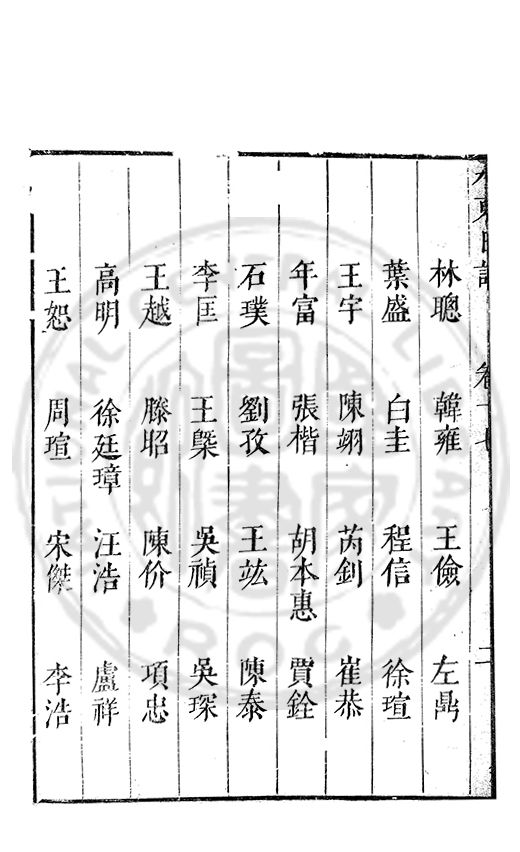 水東日記 卷十七 二
林聰 韓雍 王儉 左鼎
葉盛 白圭 程信 徐瑄
王宇 陳翊 芮釗 崔恭
年富 張楷 胡本惠 賈銓
石璞 劉孜 王竑 陳泰
李匡 王槩 吳禎 吳琛
王越 滕昭 陳价 項忠
高明 徐廷璋 汪浩 盧祥
王恕 周瑄 宋傑 李浩